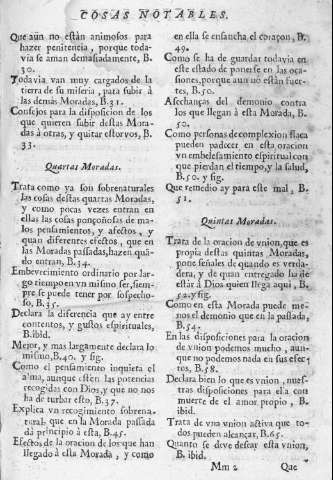 COSAS NOTABLES.
Que aun no están animosos para
hazer penitencia, porque toda-
via se aman demasiadamente, B.
30.
Todavia van muy cargados de la
tierra de su miseria, para subir à
las demás Moradas, B. 31.
Consejos para la disposicion de los
que quieren subir destas Mora-
das à otras, y quitar estorvos, B.
33.
Quartas Moradas.
Trata como ya son sobrenaturales
las cosas destas quartas Moradas,
y como pocas vezes entran en
ellas las cosas ponçoñosas de ma-
los pensamientos, y afectos, y
quan diferentes efectos, que en
las Moradas passadas, hazen, quã-
do entran, B. 34.
Embevecimiento ordinario por lar-
go tiempo en un mismo ser, siem-
pre se puede tener por sospecho-
so, B. 35.
Declara la diferencia que ay entre
contentos, y gustos espirituales,
B. ibid.
Mejor, y mas largamente declara lo
mismo, B. 40. y sig.
Como el pensamiento inquieta el
alma, aunque estèn las potencias
recogidas con Dios, y que no nos
ha de turbar esto, B. 37.
Explica vn recogimiento sobrena-
tural, que en la Morada passada
dà principio à esta, B. 45.
Efectos de la oracion de los que han
llegado à esta Morada, y como
en ella se ensancha el coraçon, B.
49.
Como se ha de guardar todavia en
este estado de ponerse en las oca-
siones, porque aun no estàn fuer-
tes, B. 50.
Asechanças del demonio contra
los que llegan à esta Morada, B.
Como personas de complexion flaca
pueden padecer en esta oracion
vn embelesamiento espiritual con
que pierdan el tiempo, y la salud,
B. 50. y sig.
Que remedio ay para este mal, B.
51.
Quintas Moradas.
Trata de la oracion de vnion, que es
propia destas quintas Moradas,
pone señales de quando es verda-
dera, y de quan entregado ha de
estàr à Dios quien llega aqui, B.
52. y sig.
Como en esta Morada puede me-
nos el demonio que en la passada,
B. 54.
En las disposiciones para la oracion
de vnion podemos mucho, aun-
que no podemos nada en sus efec-
tos, B. 58.
Declara bien lo que es vnion, nues-
tras disposiciones para ella con
muerte de el amor propio, B.
ibid.
Trata de vna vnion activa que to-
dos pueden alcançar, B. 65.
Quanto se deve desear esta vnion,
B. ibid.
Mm 2 Que